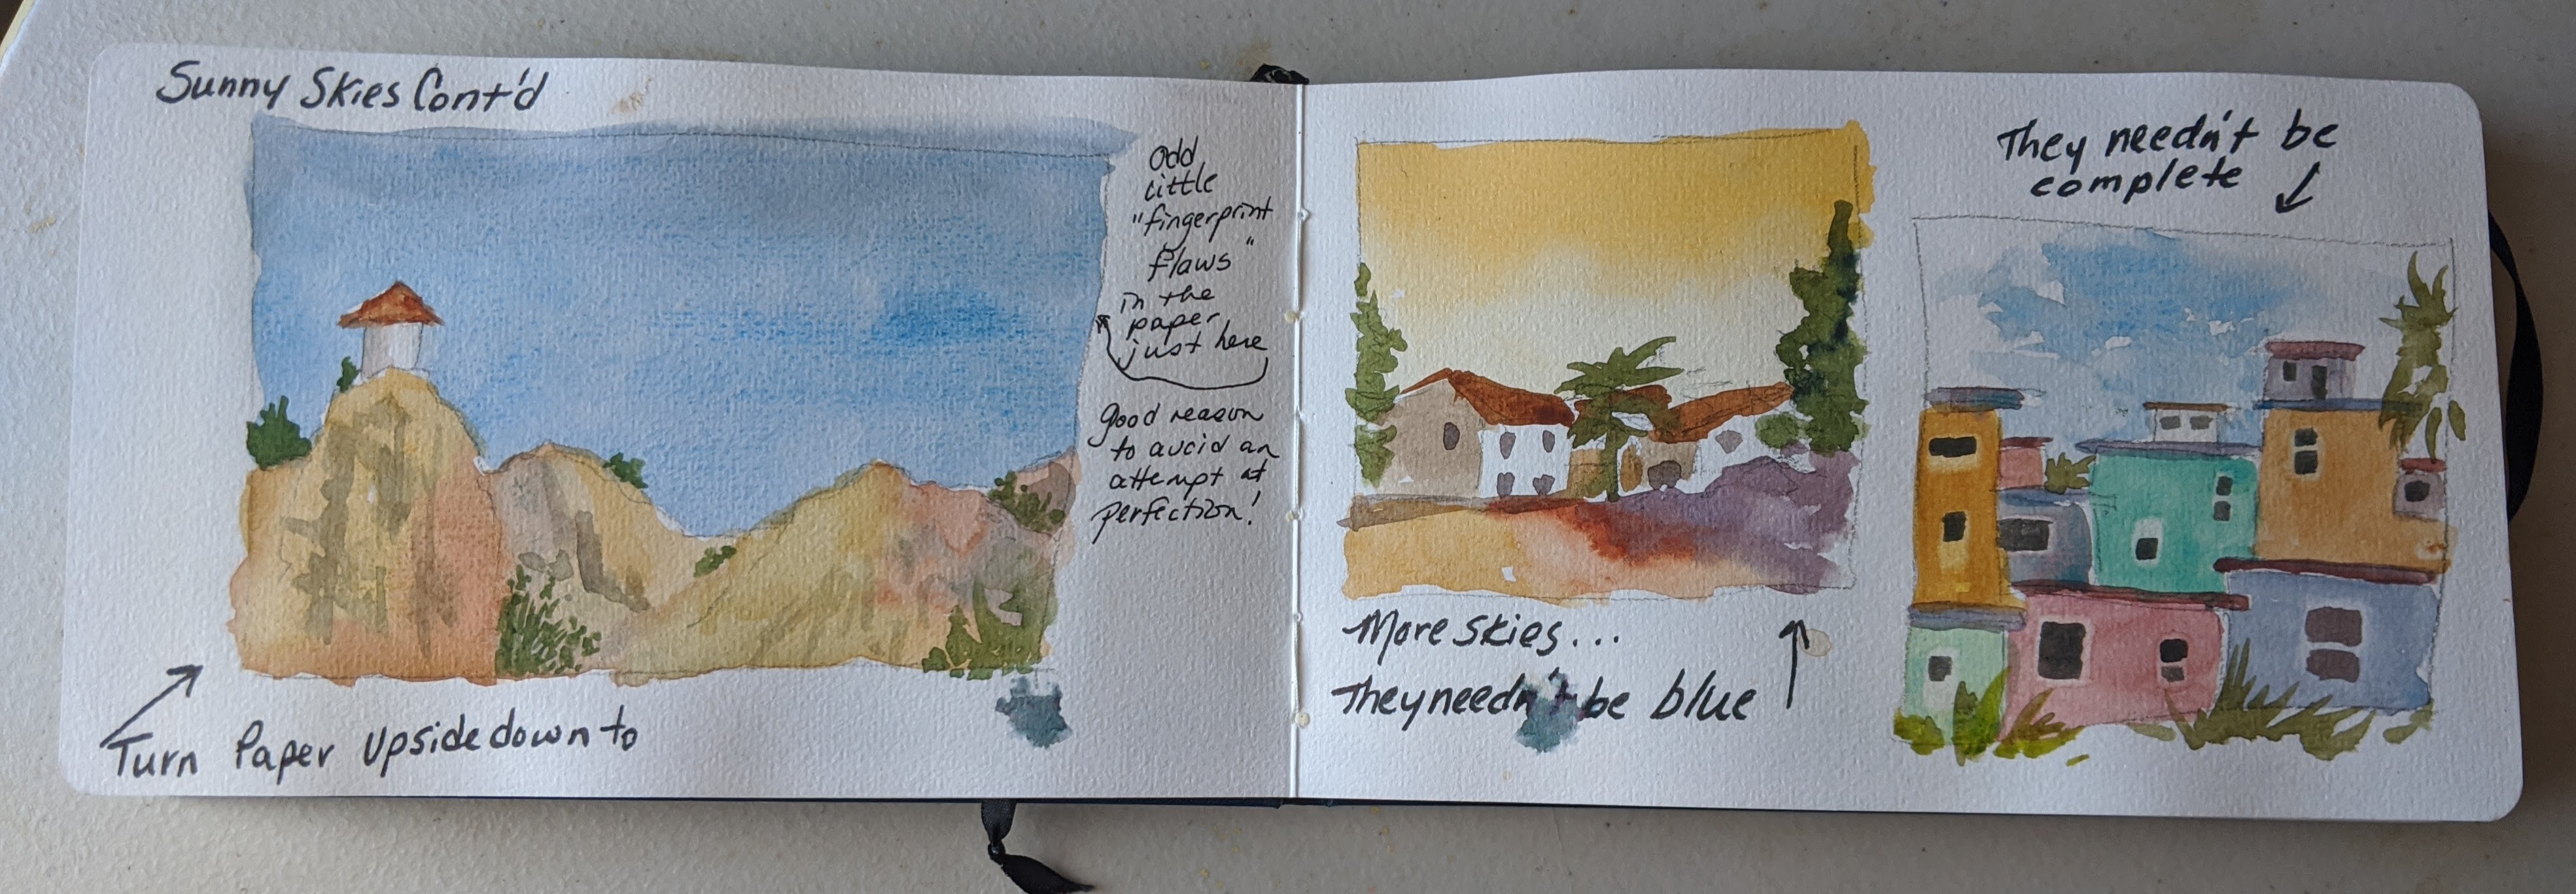 Sunny Skies Cont'd
Odd
little
"fingerprint
flaws"
in the
paper
just here
Good reason
to avoid an
attempt at
perfection!
Turn Paper Upside down to
More skies...
They needn't be blue
They needn't be
complete